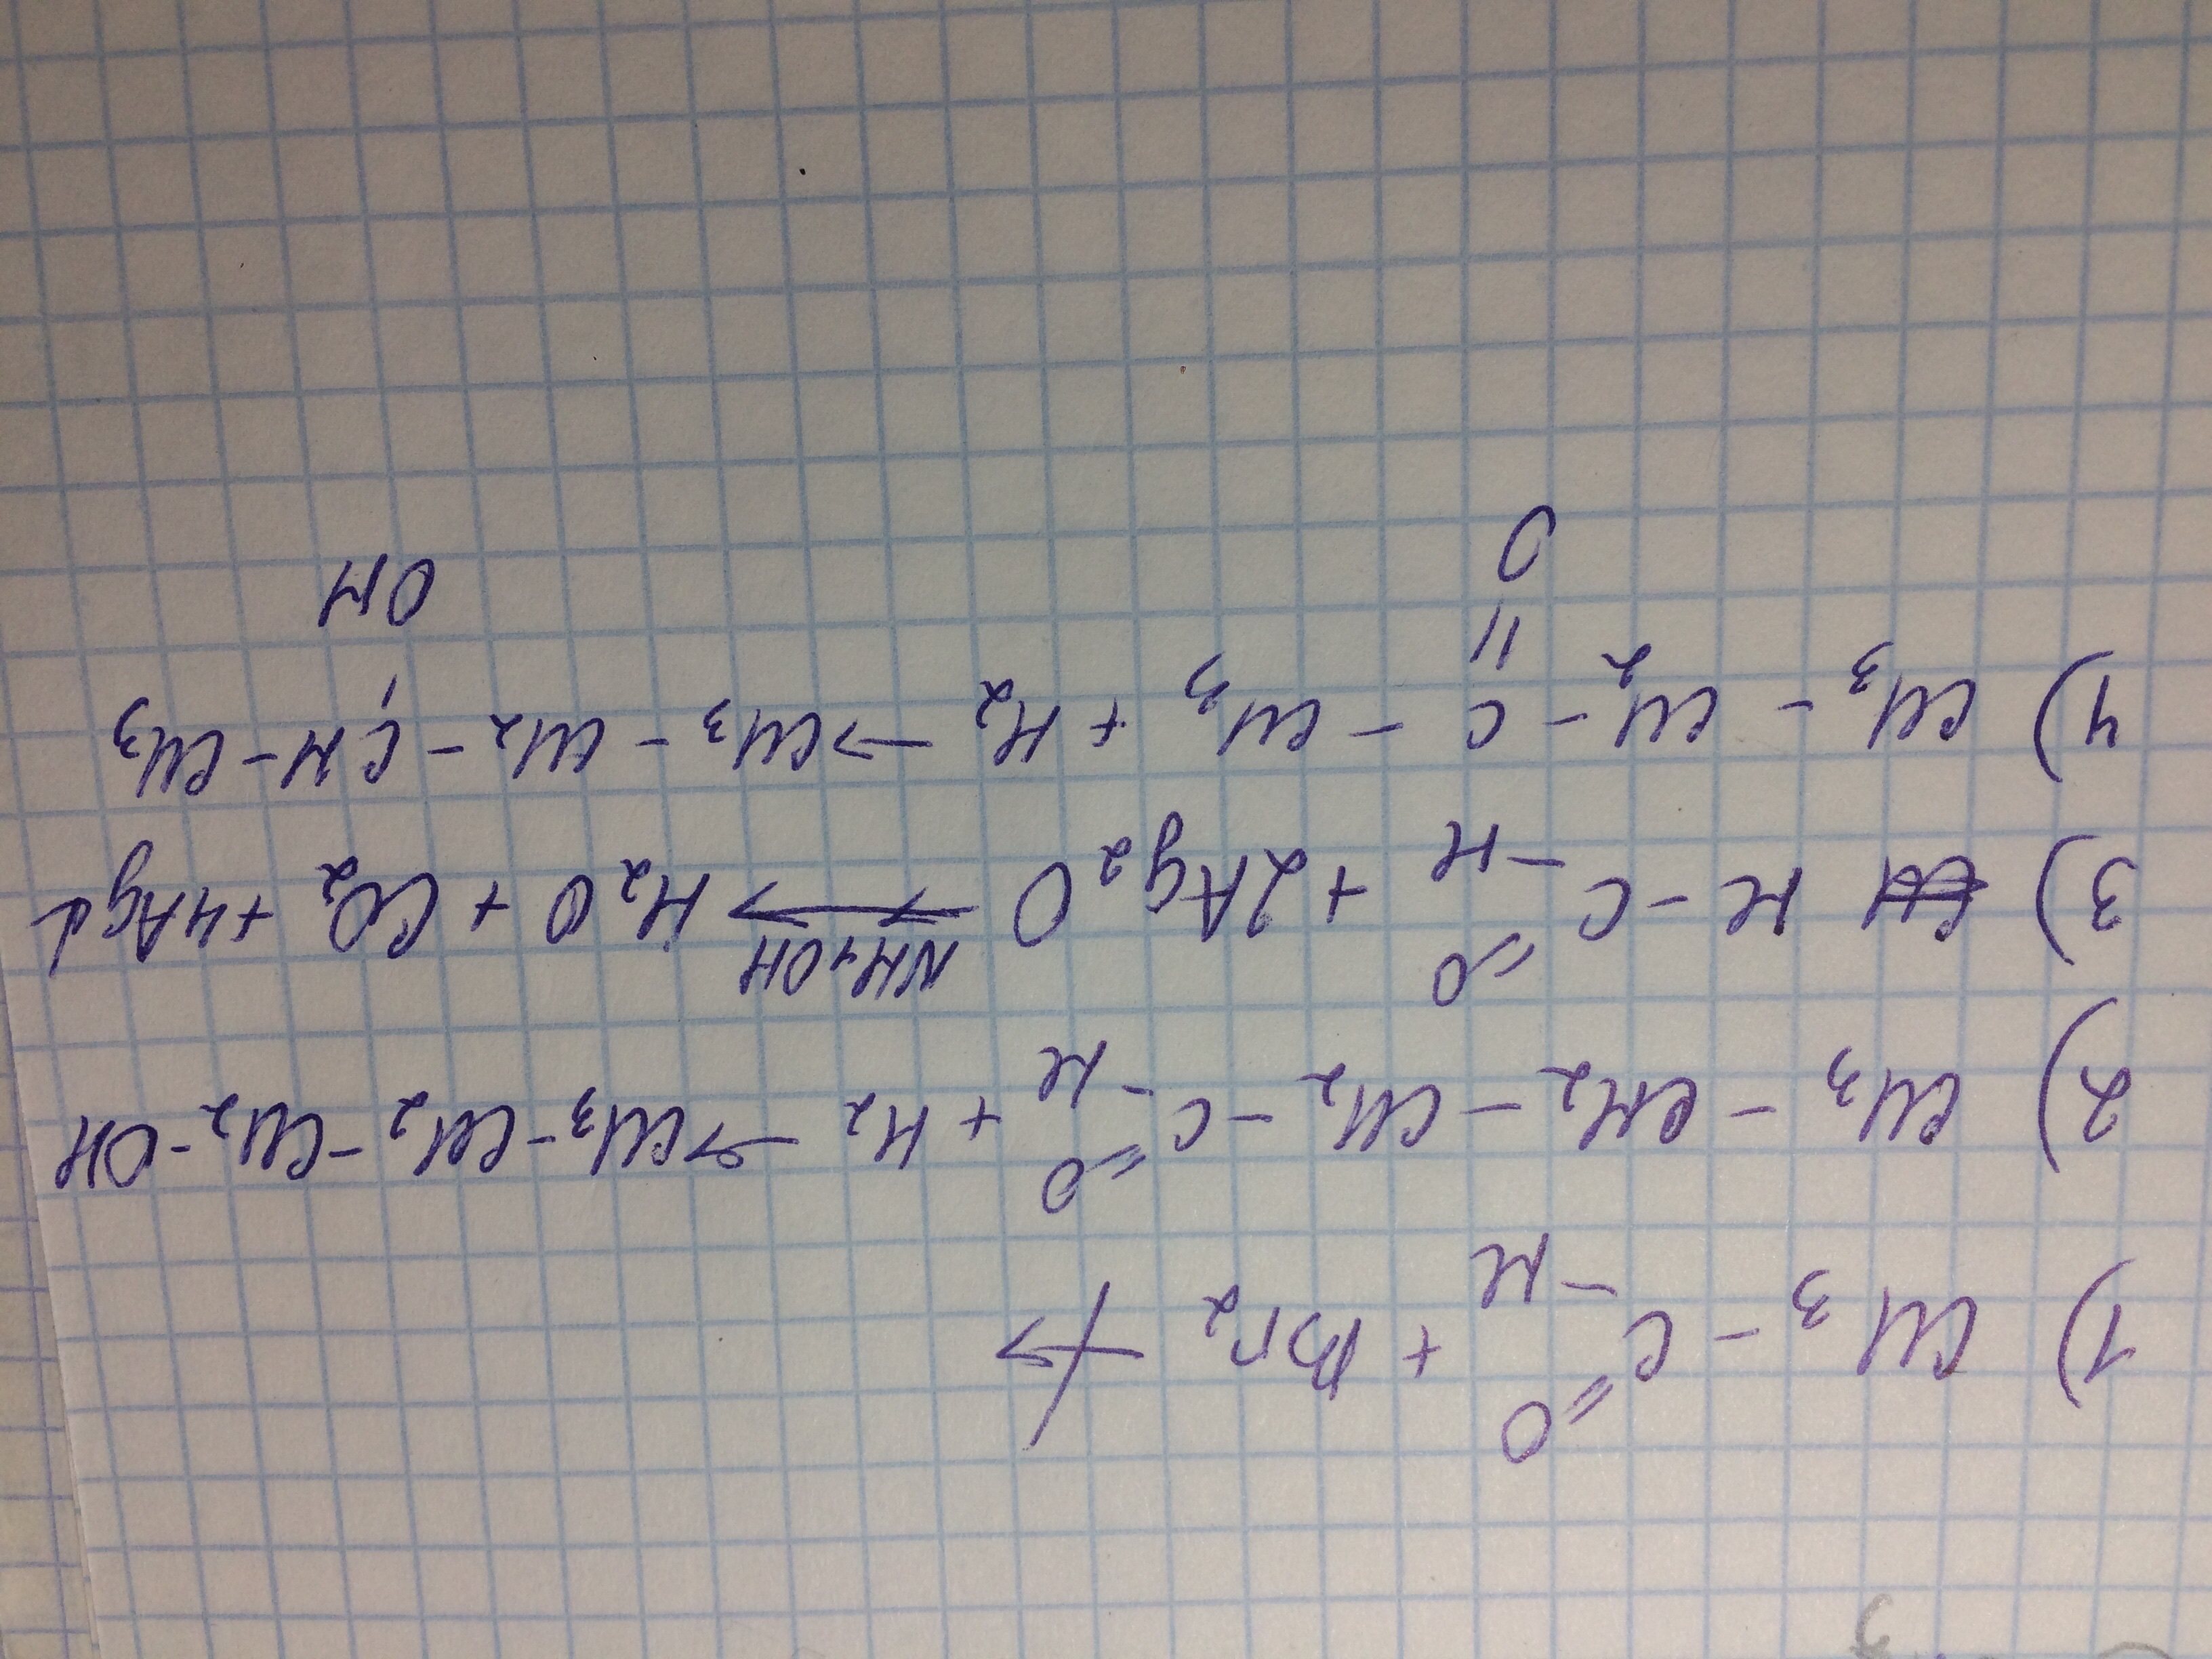 1) CH3 - C =O -H + Br2 ↛
2) CH3 - CH2 - CH2 - C =O -H + H2 → CH3 - CH2 - CH2 - OH
3) H - C =O -H + 2Ag2O NH4OH → H2O + CO2 + 4Ag↓
4) CH3 - CH2 - C - CH3 + H2 → CH3 - CH2 - CH - CH3
O OH